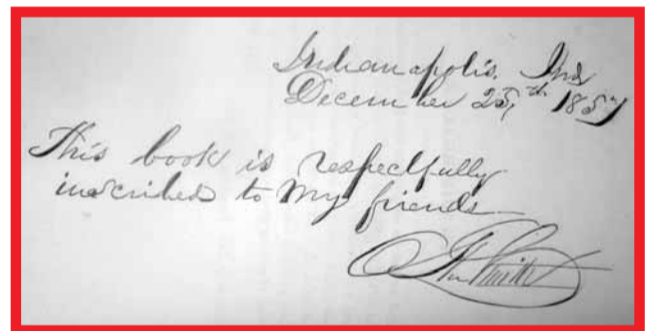 Indianapolis. Ind
December 25,th 1857
This book is respectfully
inscribed to my friends
Smith